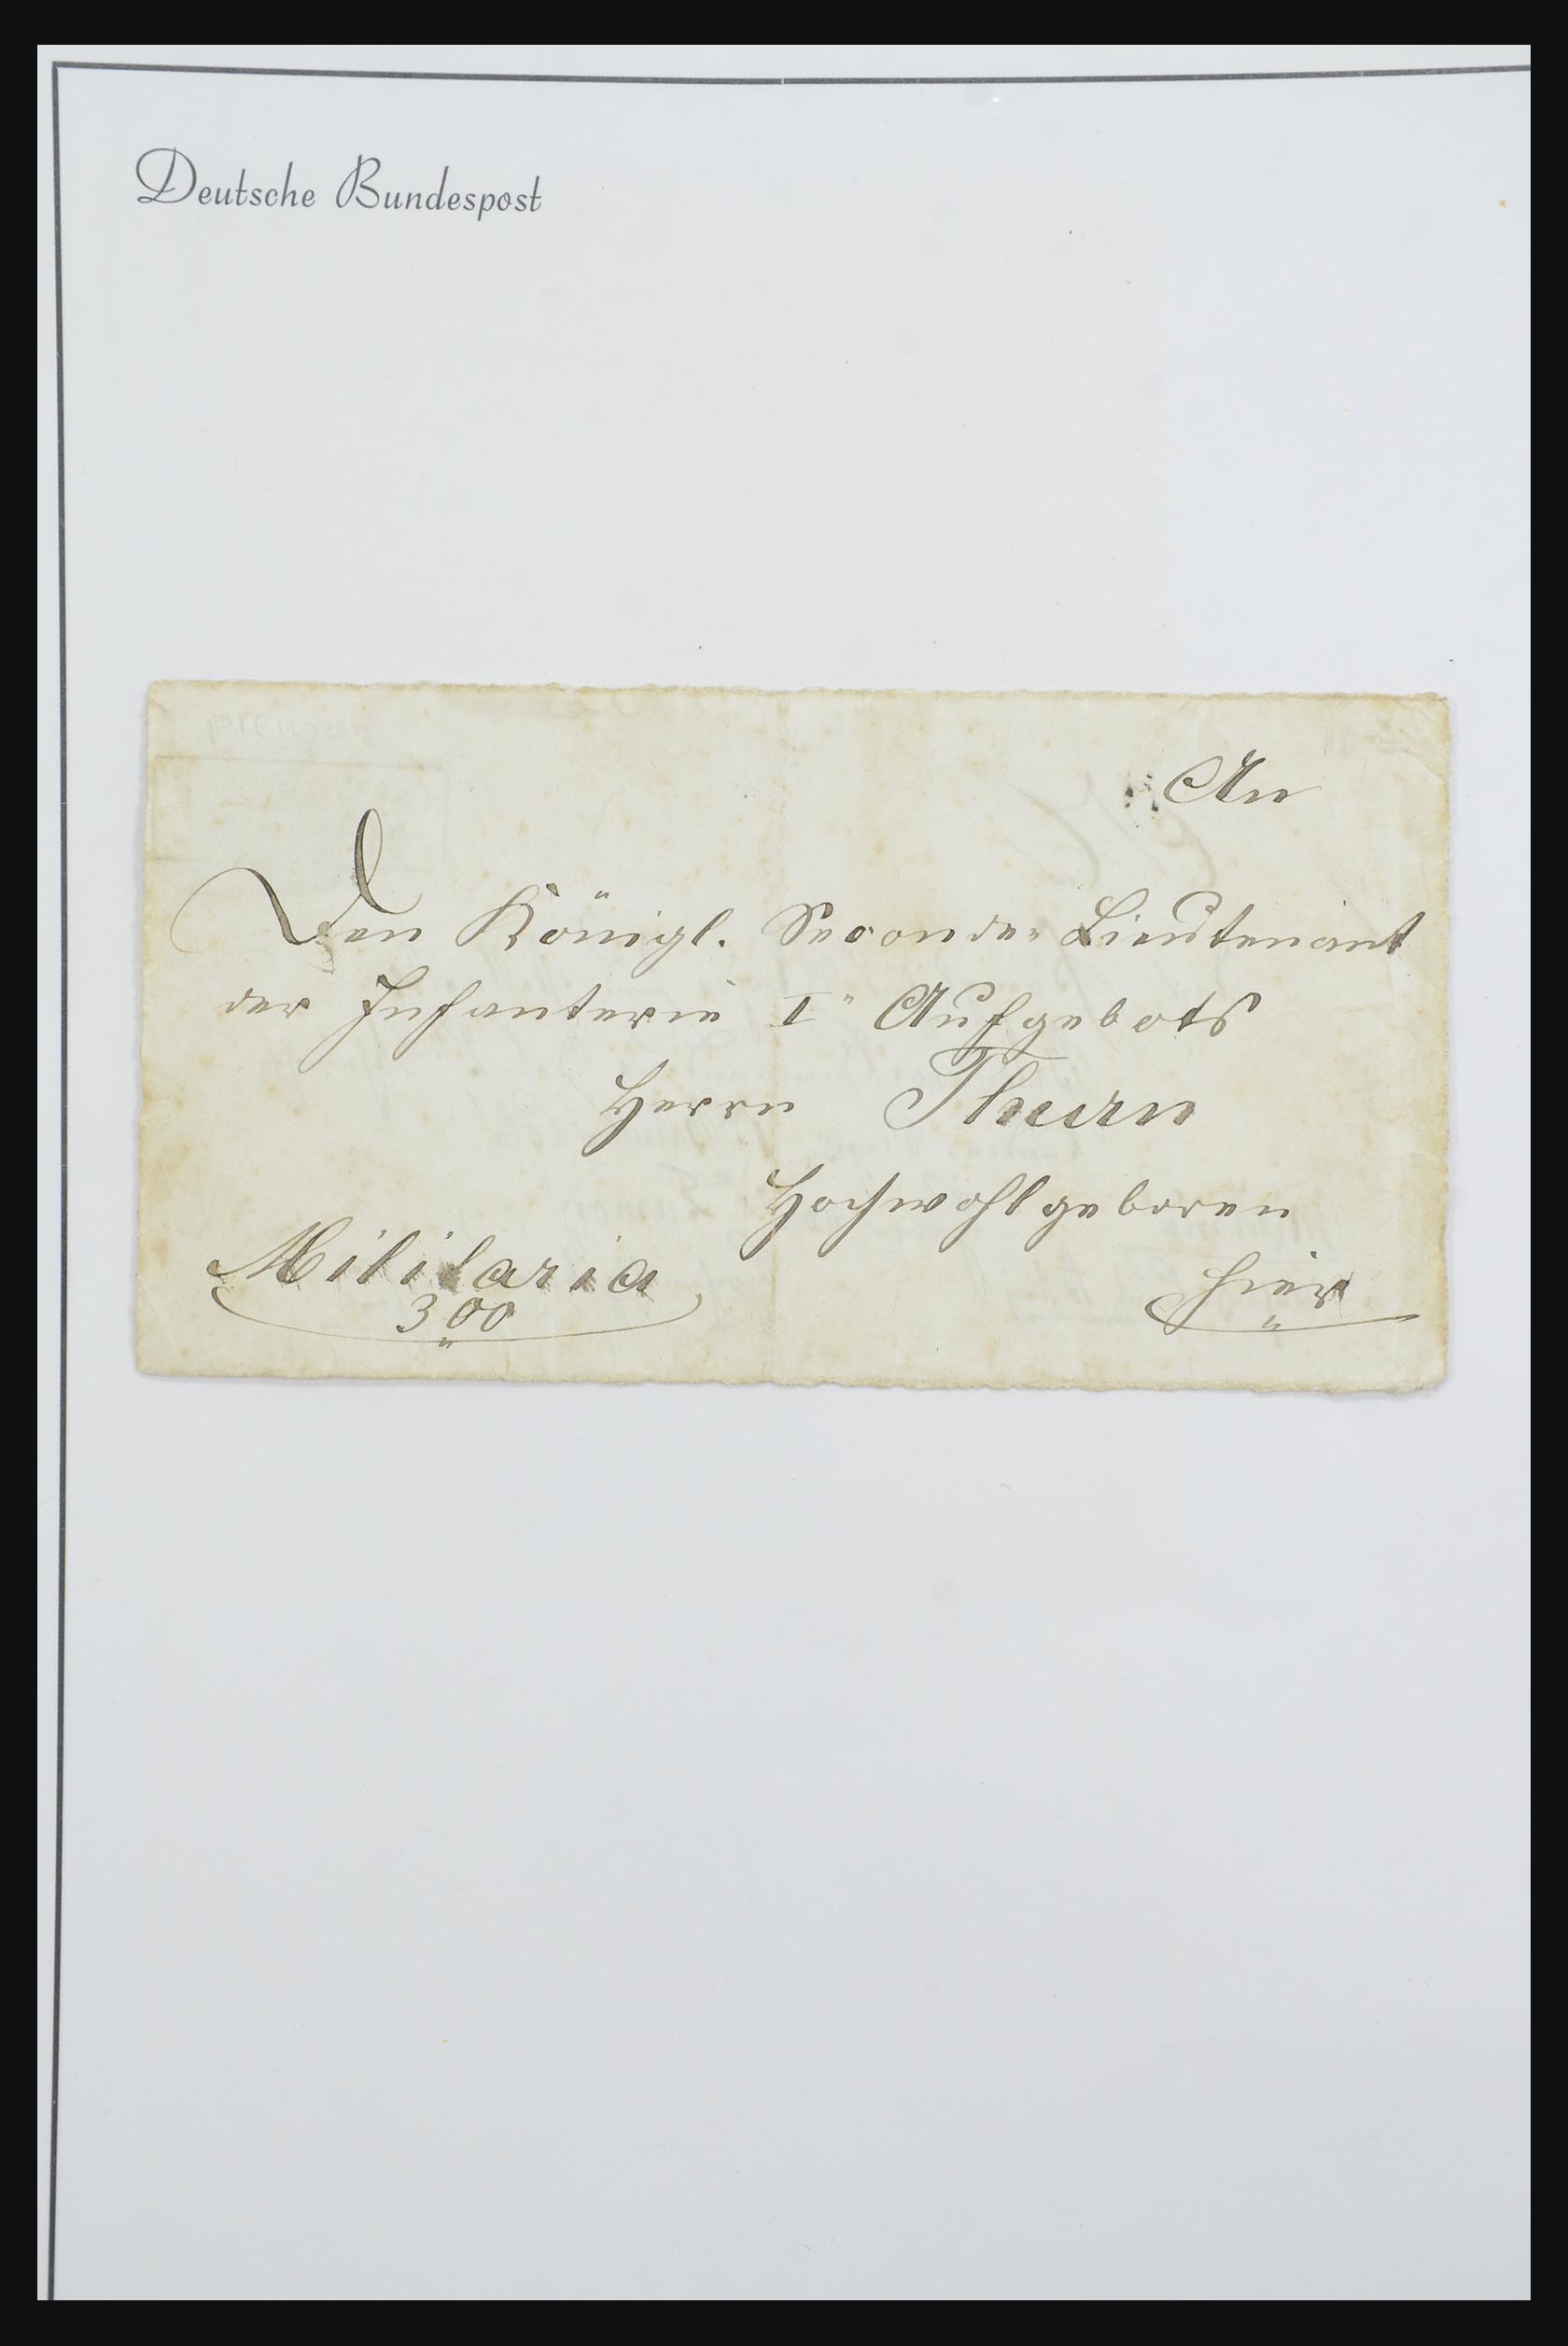 Deutsche Bundespost
An
Den Königl. Seconde-Lieutenant
der Infanterie I" Aufgebots
Herrn Thurn
Hochwohlgeboren
Militaria
300
hier